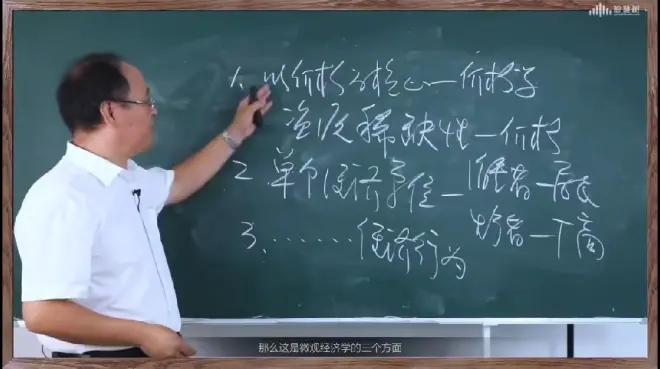 智慧树
1、以价格为核心—价格学
资源稀缺性—价格
2 单个经济单位—消费者—居民
生产者—厂商
3、……经济行为
那么这是微观经济学的三个方面